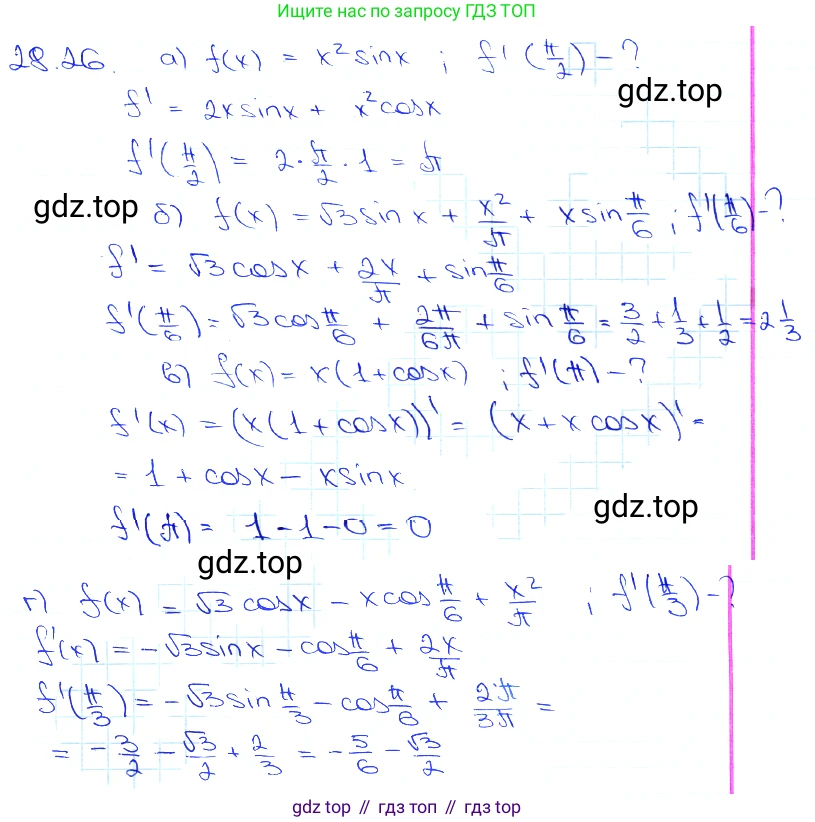 Ищите нас по запросу ГДЗ ТОП
28.26. а) f(x) = x² sinx ; f'(π/2) - ?
gdz.top
f' = 2x sinx + x² cosx
f'(π/2) = 2·π/2·1 = π
gdz.top
б) f(x) = √3 sinx + x²/π + x sin π/6 ; f'(π/6) - ?
f' = √3 cosx + 2x/π + sin π/6
f'(π/6) = √3 cos π/6 + 2π/6π + sin π/6 = 3/2 + 1/3 + 1/2 = 2 1/3
в) f(x) = x(1+cosx) ; f'(π) - ?
f'(x) = (x(1+cosx))' = (x + x cosx)' =
= 1 + cosx - x sinx
f'(π) = 1 - 1 - 0 = 0
gdz.top
gdz.top
г) f(x) = √3 cosx - x cos π/6 + x²/π ; f'(π/3) - ?
f'(x) = -√3 sinx - cos π/6 + 2x/π
f'(π/3) = -√3 sin π/3 - cos π/6 + 2·π/3π =
= -3/2 - √3/2 + 2/3 = -5/6 - √3/2
gdz.top // гдз топ // гдз top